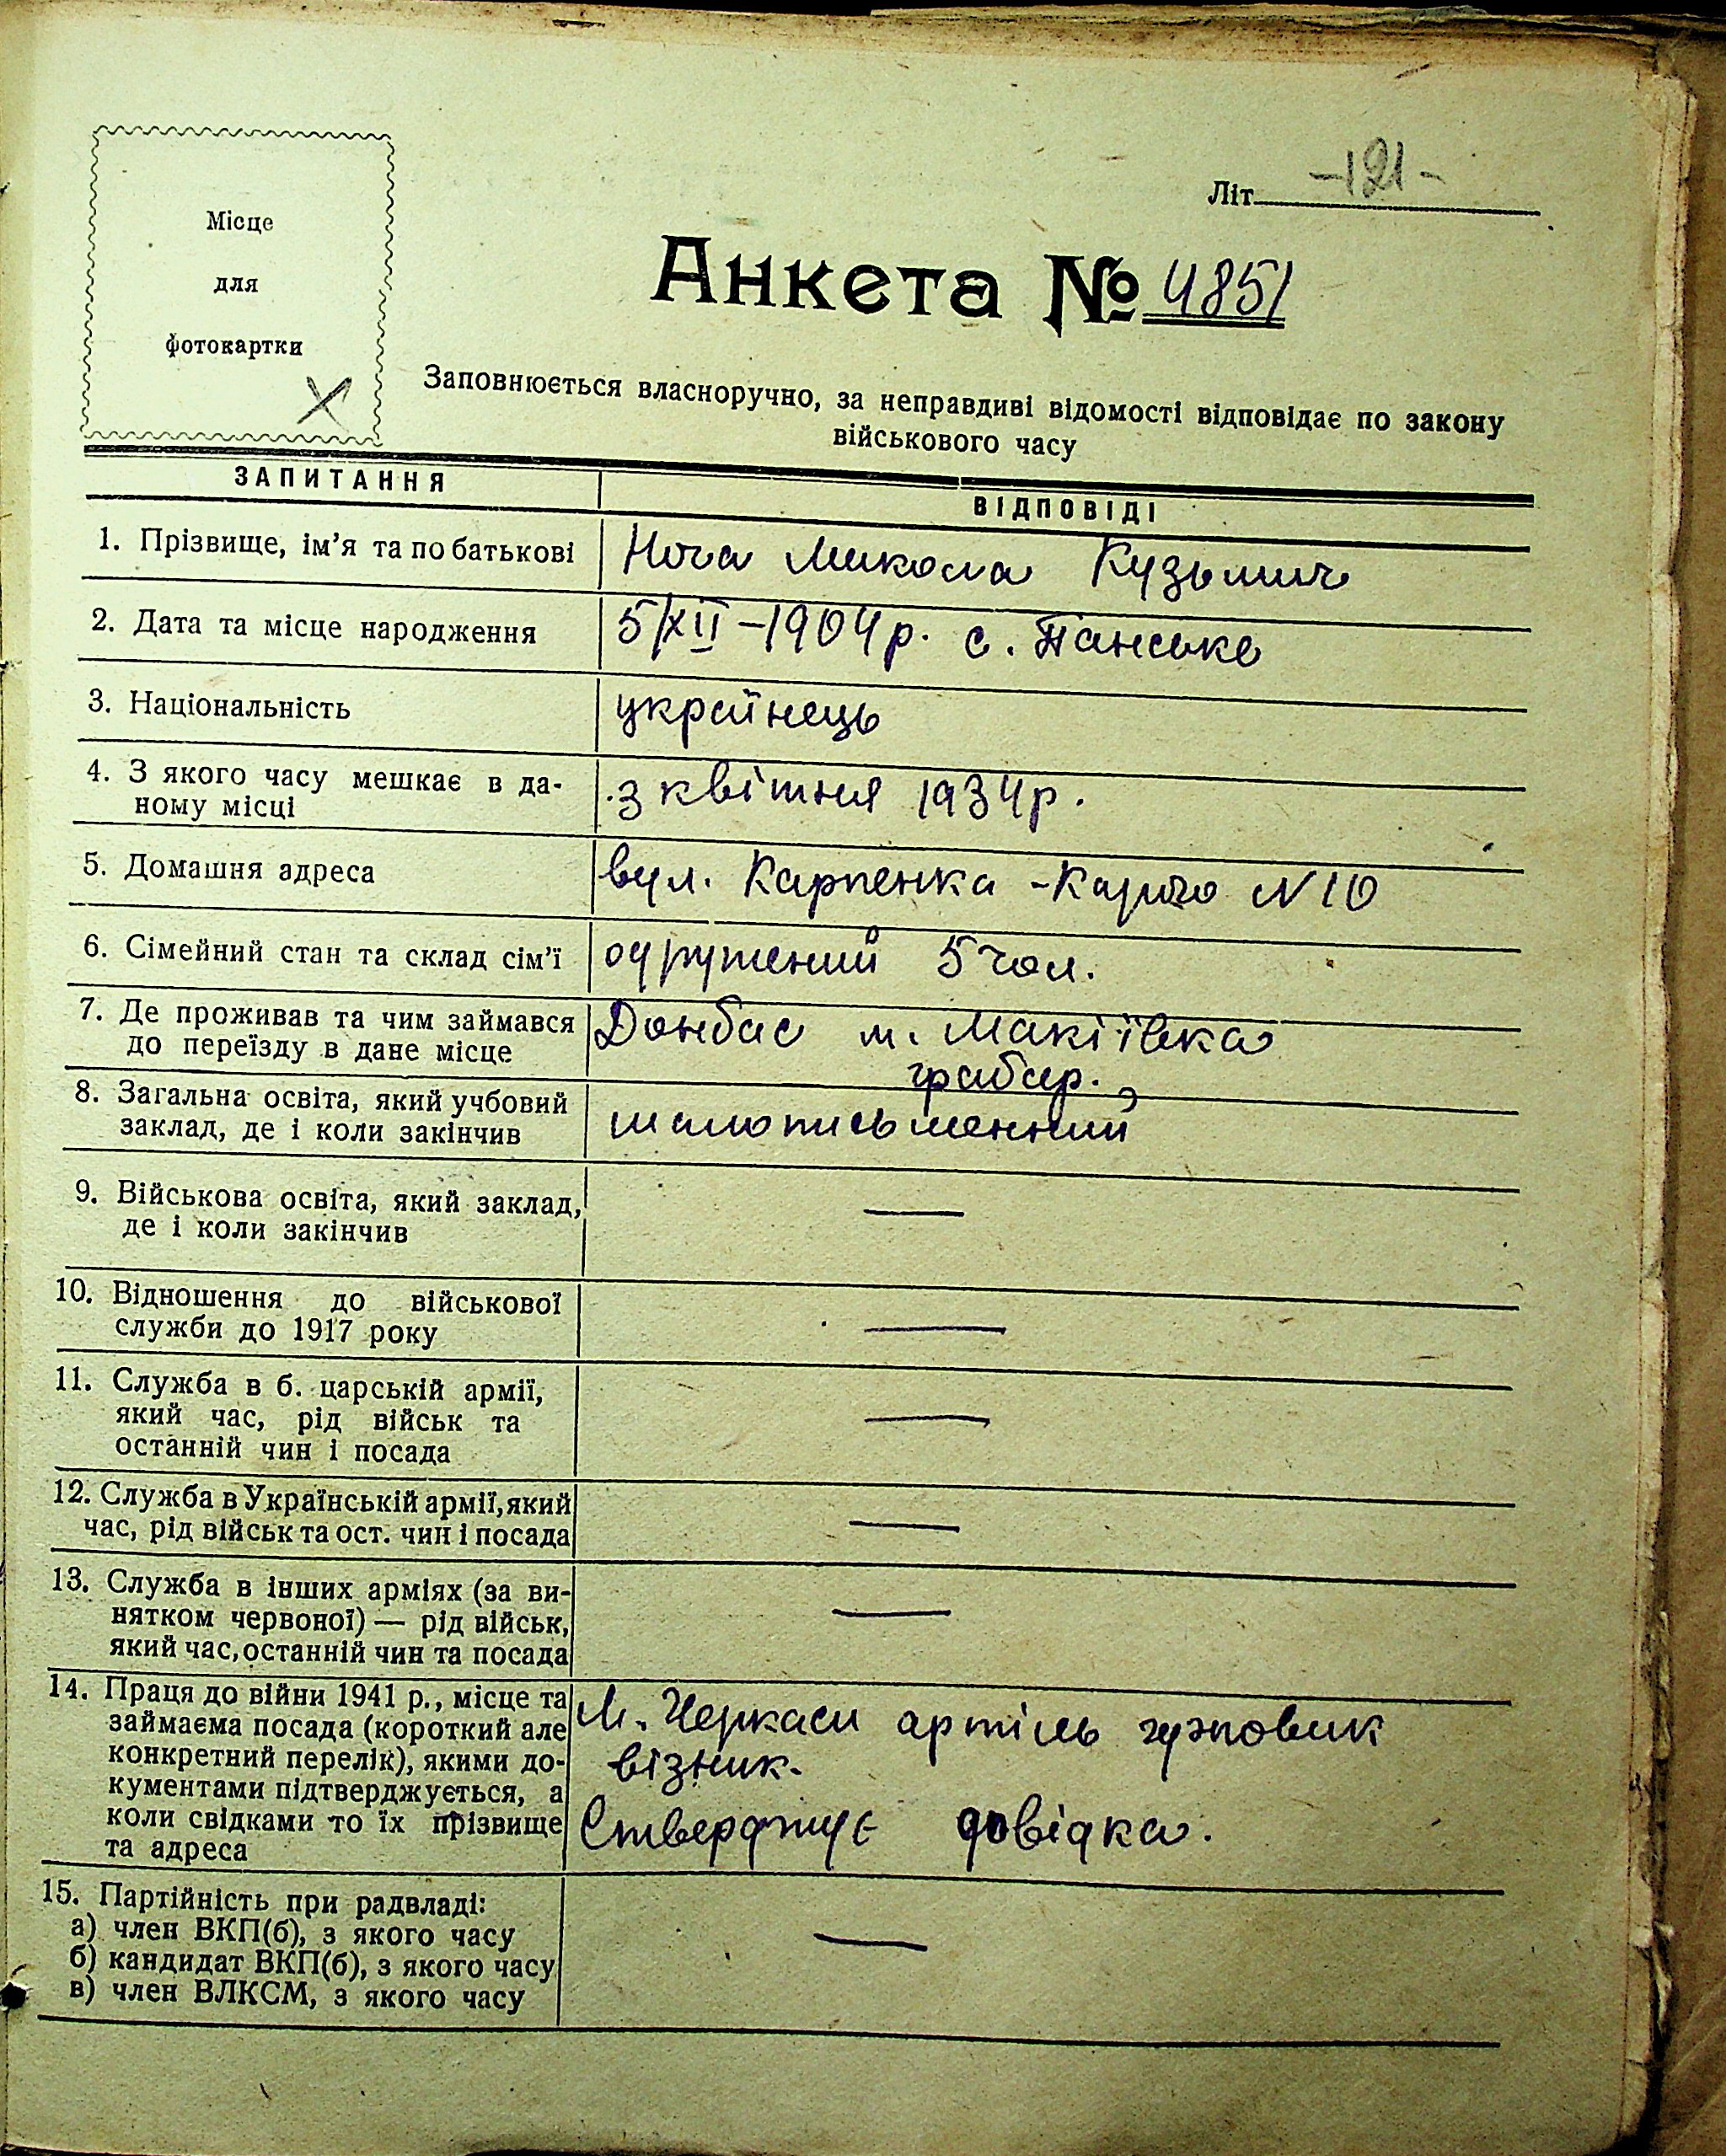 Місце
для
фотокартки
Літ. -121-
Анкета № 4851
Заповнюється власноручно, за неправдиві відомості відповідає по закону
військового часу
ЗАПИТАННЯ
ВІДПОВІДІ
1. Прізвище, ім'я та по батькові
Ноча Микола Кузьмич
2. Дата та місце народження
5/XII-1904р. с. Панське
3. Національність
українець
4. З якого часу мешкає в да-
ному місці
з квітня 1934р.
5. Домашня адреса
вул. Карпенка-Карого N 10
6. Сімейний стан та склад сім'ї
одружений 5 чол.
7. Де проживав та чим займався
до переїзду в дане місце
Донбас м. Макіївка
грабар.
8. Загальна освіта, який учбовий
заклад, де і коли закінчив
малописьменний
9. Військова освіта, який заклад,
де і коли закінчив
—
10. Відношення до військової
служби до 1917 року
—
11. Служба в б. царській армії,
який час, рід військ та
останній чин і посада
—
12. Служба в Українській армії, який
час, рід військ та ост. чин і посада
—
13. Служба в інших арміях (за ви-
нятком червоної) — рід військ,
який час, останній чин та посада
—
14. Праця до війни 1941 р., місце та
займаєма посада (короткий але
конкретний перелік), якими до-
кументами підтверджується, а
коли свідками то їх прізвище
та адреса
М. Черкаси артіль гузповик
візник.
Стверджує довідка.
15. Партійність при радвладі:
а) член ВКП(б), з якого часу
б) кандидат ВКП(б), з якого часу
в) член ВЛКСМ, з якого часу
—